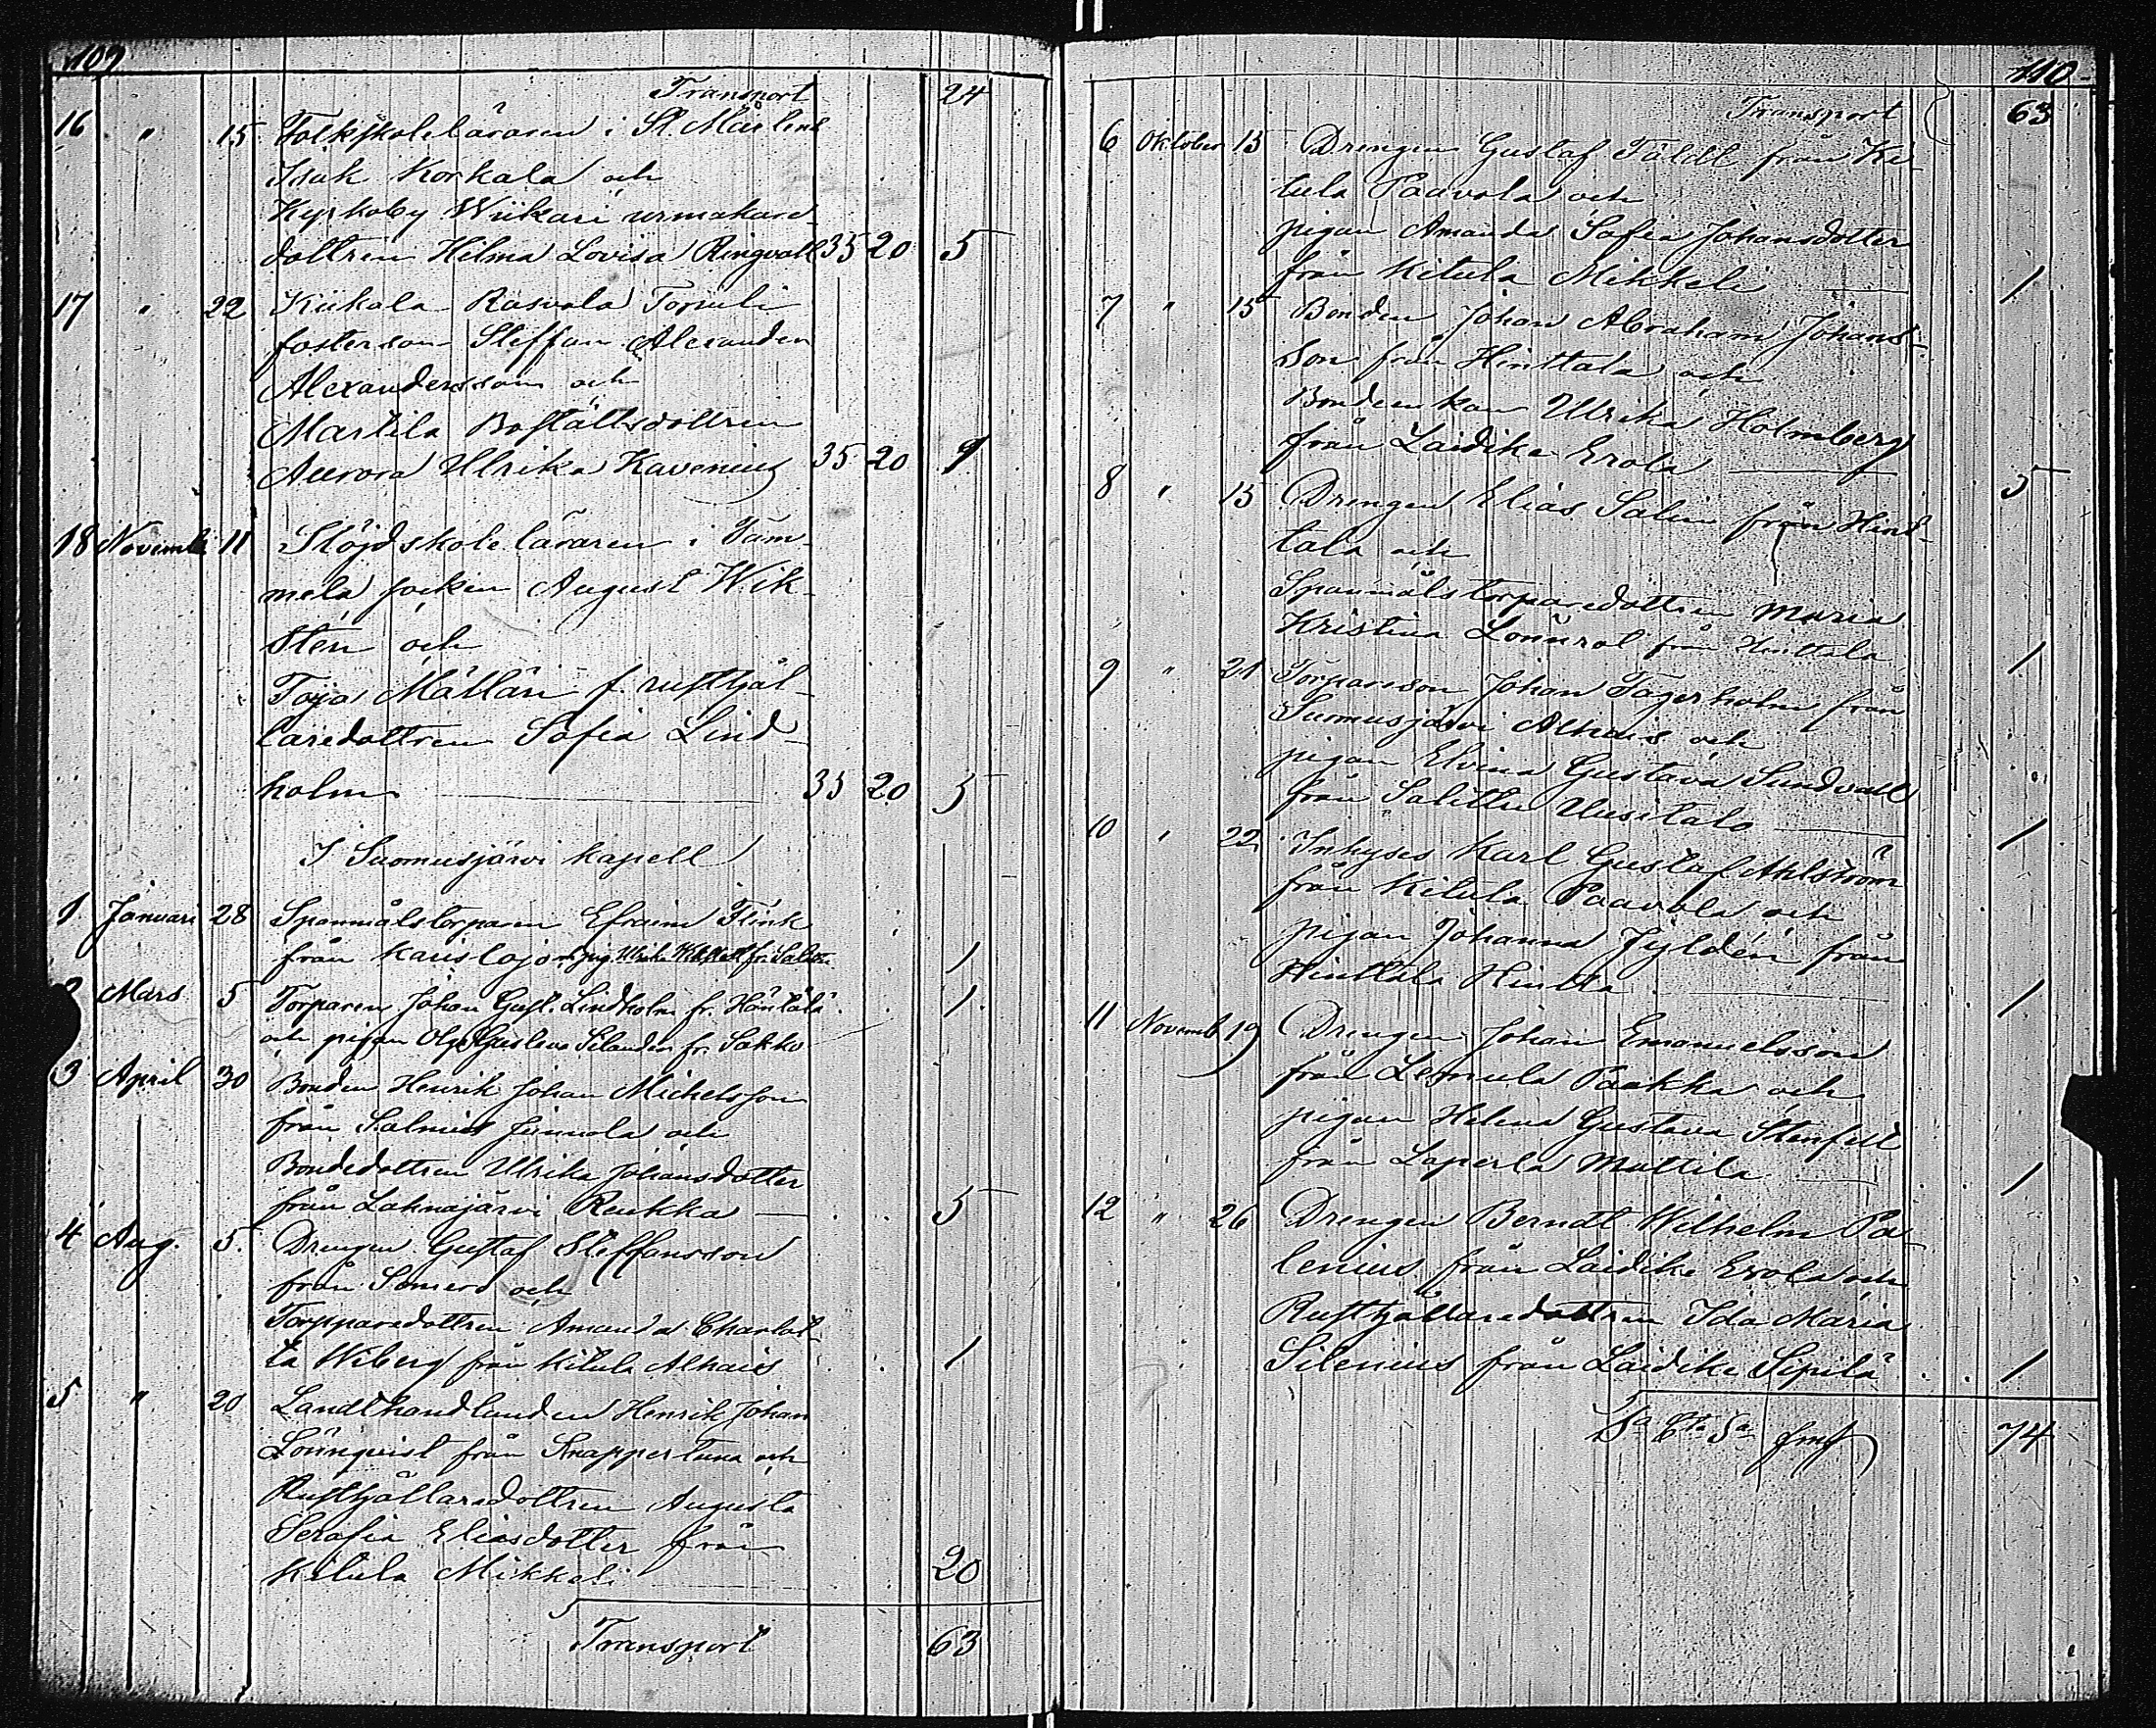 109
Transport 24
16 " 15 Folkskoleläraren i St Mårtens
Isak Korkala och
Kyrkoby Wiikari urmakare
dottren Hilma Lovisa Ringvall 35 20 5
17 " 22 Kiikala Rasvala Torvuli
fosterson Steffan Alexander
Alexandersson och
Martila Boställsdottren
Aurora Ulrika Kavenius 35 20 1
18 Novemb 11 Slöjdskoleläraren i Tam-
mela socken August Wik-
sten och
Toja Mälläri f. rusthål-
laredottren Sofia Lind-
holm 35 20 5
I Suomusjärvi kapell
1 Januari 28 Spannmålstorparen Efraim Flink
från Karislojo o. pig. Ulrika fr. Salittu 1
2 Mars 5 Torparen Johan Gust. Lindholm fr. Häntälä 1
och pigan Olga Gustava Selander fr. Sakko
3 April 30 Bonden Henrik Johan Michelsson
från Salmis Junnola och
Bondedottren Ulrika Johansdotter
från Lahnajärvi Reukka 5
4 Aug. 5. Drengen Gustaf Steffansson
från Somero och
Torpparedottren Amanda Charlot-
ta Wiberg från Kitula Alhais 1
5 " 20 Landthandlanden Henrik Johan
Lönnqvist från Snappertuna och
Rusthållaredottren Augusta
Serafia Eliasdotter från
Kitula Mikkeli 20
Transport 63
110
Transport 63
6 Oktober 15 Drengen Gustaf Täldt från Ki
tula Paavola och
pigan Amanda Sofia Johansdotter
från Kitula Mikkeli 1
7 " 15 Bonden Johan Abraham Johans-
son från Hinttala och
Bondeenkan Ulrika Holmberg
från Laidike Erola 5
8 " 15 Drengen Elias Salin från Hint-
tala och
Spanmålstorparedottren Maria
Kristina Lönnrot från Hinttala 1
9 " 21 Torpareson Johan Fagerholm från
Suomusjärvi Alhais och
pigan Elvina Gustava Sundvall
från Salittu Uusitalo 1
10 " 22 Inhyses Karl Gustaf Ahlström
från Kitula Paavola och
pigan Johanna Jyldén från
Hinttala Hintta 1
11 Novemb 19 Drengen Johan Emanuelsson
från Lemula Paakka och
pigan Helena Gustava Stenfell
från Laperla Mattila 1
12 " 26 Drengen Berndt Wilhelm Pa-
lenius från Laidike Erola och
Rusthållaredottren Ida Maria
Silenius från Laidike Sipilä 1
Sa Cta Sa fmf 74